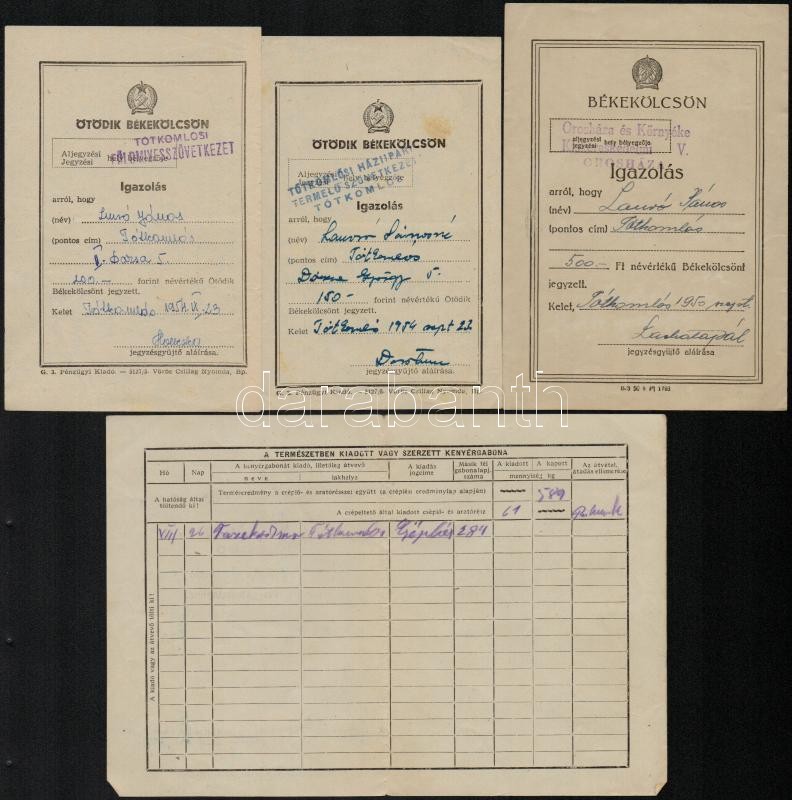 ÖTÖDIK BÉKEKÖLCSÖN
TÓTKOMLÓSI
FÖLDMIVESSZÖVETKEZET
Aljegyzési
Jegyzési hely bélyegzője
Igazolás
arról, hogy
(név) János
(pontos cím) Tótkomlós
II. Dózsa
100.— forint névértékű Ötödik
Békekölcsönt jegyzett.
Kelet Tótkomlós 1954 IX 23
jegyzésgyűjtő aláírása.
G. 3. Pénzügyi Kiadó. — 5127,5. Vörös Csillag Nyomda, Bp.
ÖTÖDIK BÉKEKÖLCSÖN
Aljegyzési
Jegyzési hely bélyegzője
TÓTKOMLÓSI HÁZIIPARI
TERMELŐ SZÖVETKEZET
TÓTKOMLÓS
Igazolás
arról, hogy
(név) Lauró Jánosné
(pontos cím) Tótkomlós
Dózsa György
150- forint névértékű Ötödik
Békekölcsönt jegyzett.
Kelet Tótkomlós 1954 szept 23.
jegyzésgyűjtő aláírása.
G. 3. Pénzügyi Kiadó. — 5127,5. Vörös Csillag Nyomda, Bp.
BÉKEKÖLCSÖN
aljegyzési
jegyzési hely bélyegzője
Orosháza és Környéke
V.
OROSHÁZA
Igazolás
arról, hogy
(név) Lauró János
(pontos cím) Tótkomlós
500.— Ft névértékű Békekölcsönt
jegyzett.
Kelet, Tótkomlós 1950 szept.
jegyzésgyűjtő aláírása
darabanth
A TERMÉSZETBEN KIADOTT VAGY SZERZETT KENYÉRGABONA
Hó Nap A kenyérgabonát kiadó, illetőleg átvevő A kiadás jogcíme Másik fél gabonalap. száma A kiadott A kapott Az átvétel, átadás elismerése
neve lakhelye mennyiség kg
A hatóság által töltendő ki! Terméseredmény a cséplő- és aratórésszel együtt (a cséplési eredménylap alapján) —— 589
A cséplőtető által kiadott cséplő- és aratórész 61 ——
VIII 26 Tótkomlós Cséplés 284
A kiadó vagy az átvevő tölti ki!